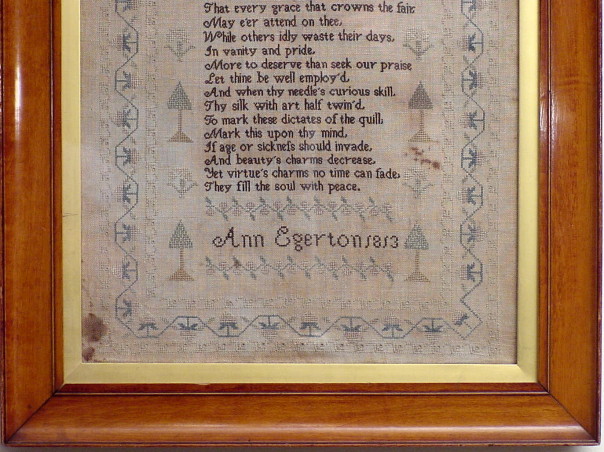 That every grace that crowns the fair
May e'er attend on thee,
While others idly waste their days,
In vanity and pride,
More to deserve than seek our praise
Let thine be well employ'd,
And when thy needle's curious skill,
Thy silk with art half twin'd,
To mark these dictates of the quill,
Mark this upon thy mind,
If age or sicknefs should invade,
And beauty's charms decrease,
Yet virtue's charms no time can fade,
They fill the soul with peace.
Ann Egerton 1813